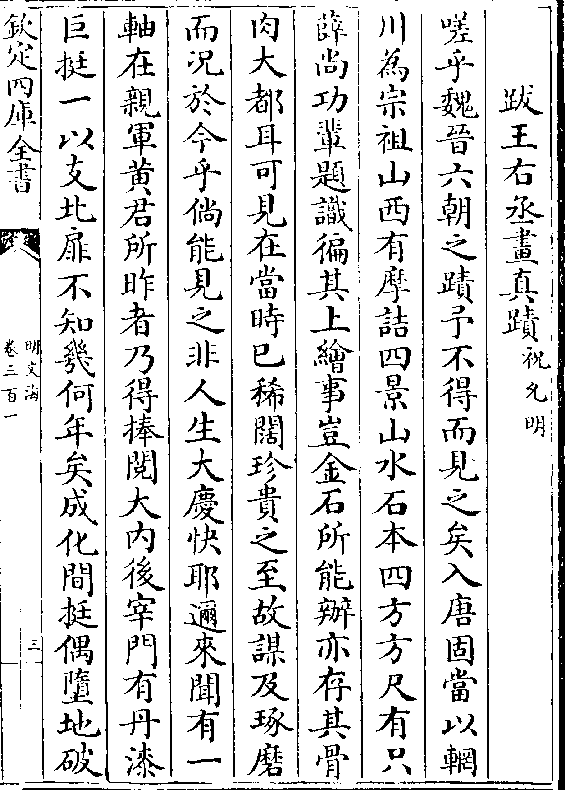 跋王右丞畫真蹟祝允明
嗟乎魏晉六朝之蹟予不得而見之矣入唐固當以輞
川為宗祖山西有摩詰四景山水石本四方方尺有只
薛尚功輩題識徧其上繪事豈金石所能辦亦存其骨
肉大都耳可見在當時已稀闊珍貴之至故謀及琢磨
而况於今乎倘能見之非人生大慶快耶邇來聞有一
軸在親軍黄君所昨者乃得捧閱大内後宰門有丹漆
巨挺一以支北扉不知幾何年矣成化間挺偶墮地破
欽定四庫全書
明文海
卷三百一
三